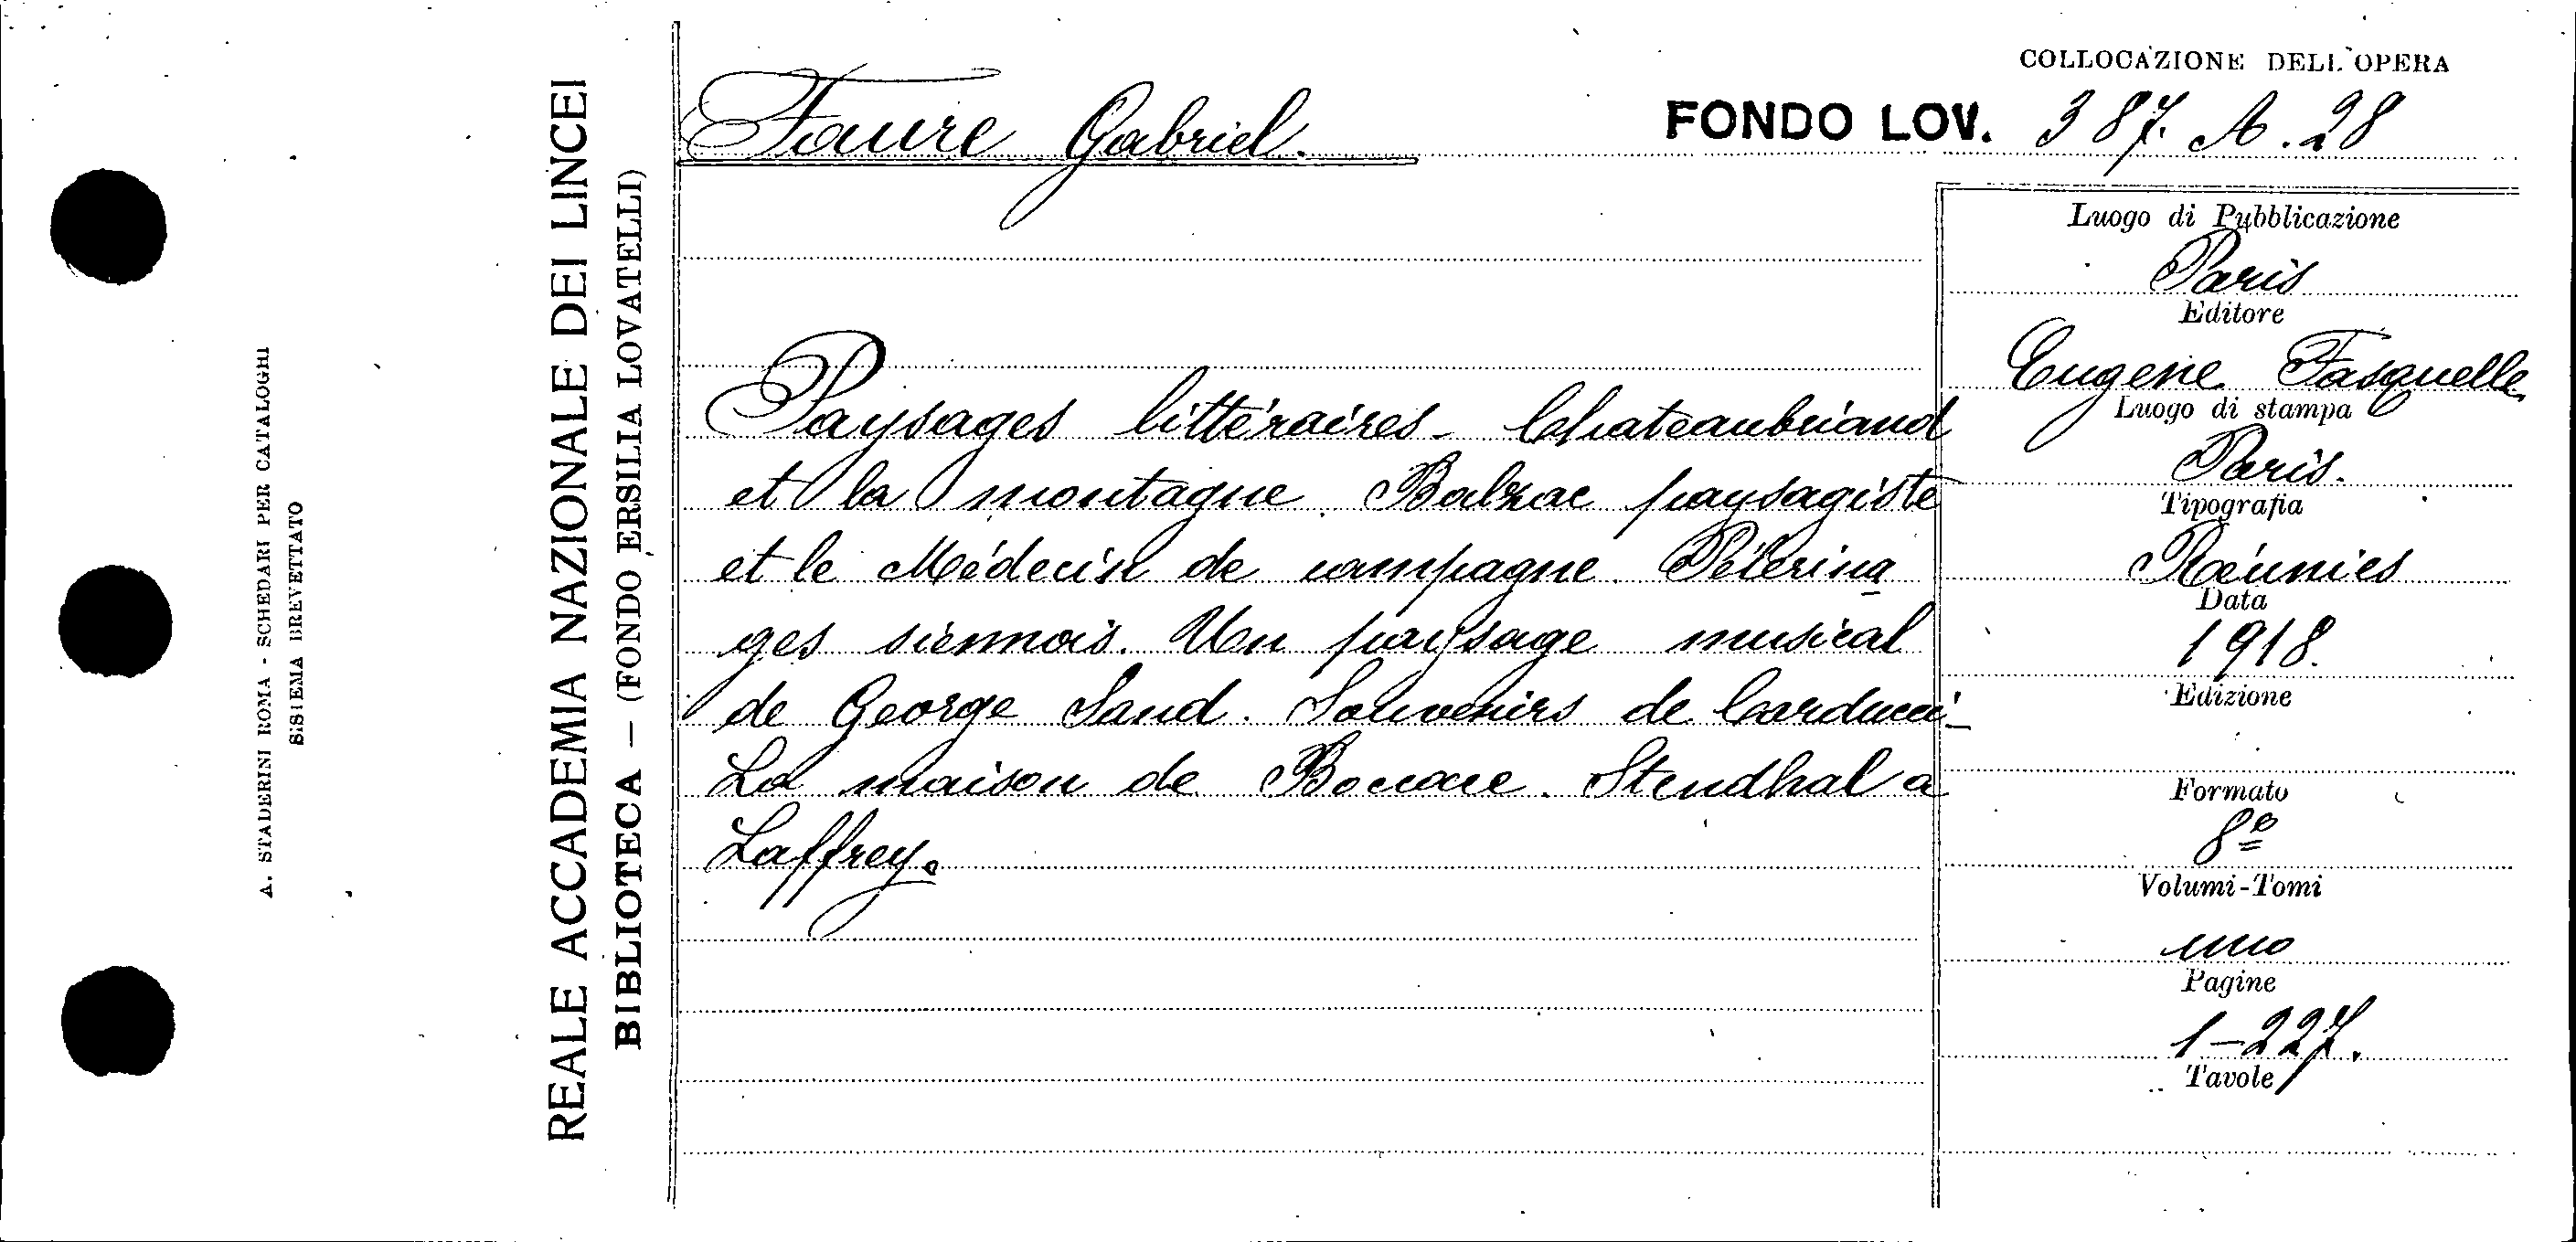 A. STADERINI ROMA - SCHEDARI PER CATALOGHI
SISTEMA BREVETTATO
REALE ACCADEMIA NAZIONALE DEI LINCEI
BIBLIOTECA — (FONDO ERSILIA LOVATELLI)
COLLOCAZIONE DELL'OPERA
Faure Gabriel.
FONDO LOV. 387. A. 28
Paysages littéraires - Chateaubriand
et la montagne. Balzac paysagiste
et le Médecin de campagne. Pélerina
ges siennois. Un paysage musical
de George Sand. Souvenirs de Carducci -
La maison de Boccace. Stendhal a
Laffrey.
Luogo di Pubblicazione
Paris
Editore
Eugene Fasquelle
Luogo di stampa
Paris.
Tipografia
Réunies
Data
1918.
Edizione
Formato
8º
Volumi-Tomi
uno
Pagine
1-227.
Tavole